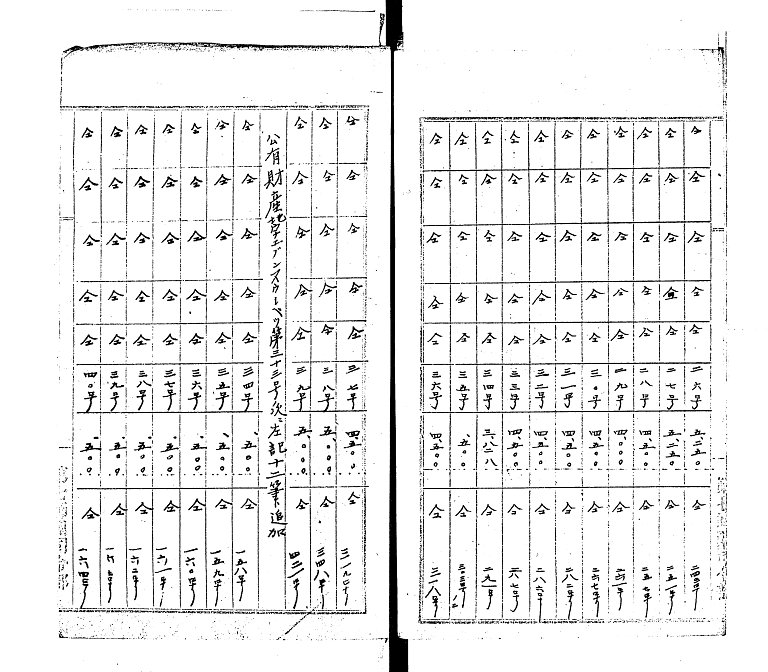 仝 仝 仝 仝 仝 二六号 五、二五〇 仝
仝 仝 仝 仝 仝 二七号 五、二五〇 仝
仝 仝 仝 仝 仝 二八号 四、五〇〇 仝
仝 仝 仝 仝 仝 二九号 四、〇〇〇 仝
仝 仝 仝 仝 仝 三〇号 四、五〇〇 仝
仝 仝 仝 仝 仝 三一号 四、五〇〇 仝 二八二号
仝 仝 仝 仝 仝 三二号 四、五〇〇 仝 二八六号
仝 仝 仝 仝 仝 三三号 四、五〇〇 仝 二八七号
仝 仝 仝 仝 仝 三四号 三、八二八 仝 二九一号
仝 仝 仝 仝 仝 三五号 仝
仝 仝 仝 仝 仝 三六号 四、五〇〇 仝 三一八号
仝 仝 仝 仝 仝 三七号 四、五〇〇 仝
仝 仝 仝 仝 仝 三八号 五、〇〇〇 仝 三四八号
仝 仝 仝 仝 仝 三九号 五、〇〇〇 仝
公有財産 第三十三号次ニ左記十二筆追加
仝 仝 仝 仝 仝 三四号 五〇〇 仝 一五八号
仝 仝 仝 仝 仝 三五号 五〇〇 仝 一五九号
仝 仝 仝 仝 仝 三六号 五〇〇 仝 一六〇号
仝 仝 仝 仝 仝 三七号 五〇〇 仝 一六一号
仝 仝 仝 仝 仝 三八号 五〇〇 仝 一六二号
仝 仝 仝 仝 仝 三九号 五〇〇 仝
仝 仝 仝 仝 仝 四〇号 五〇〇 仝 一六四号